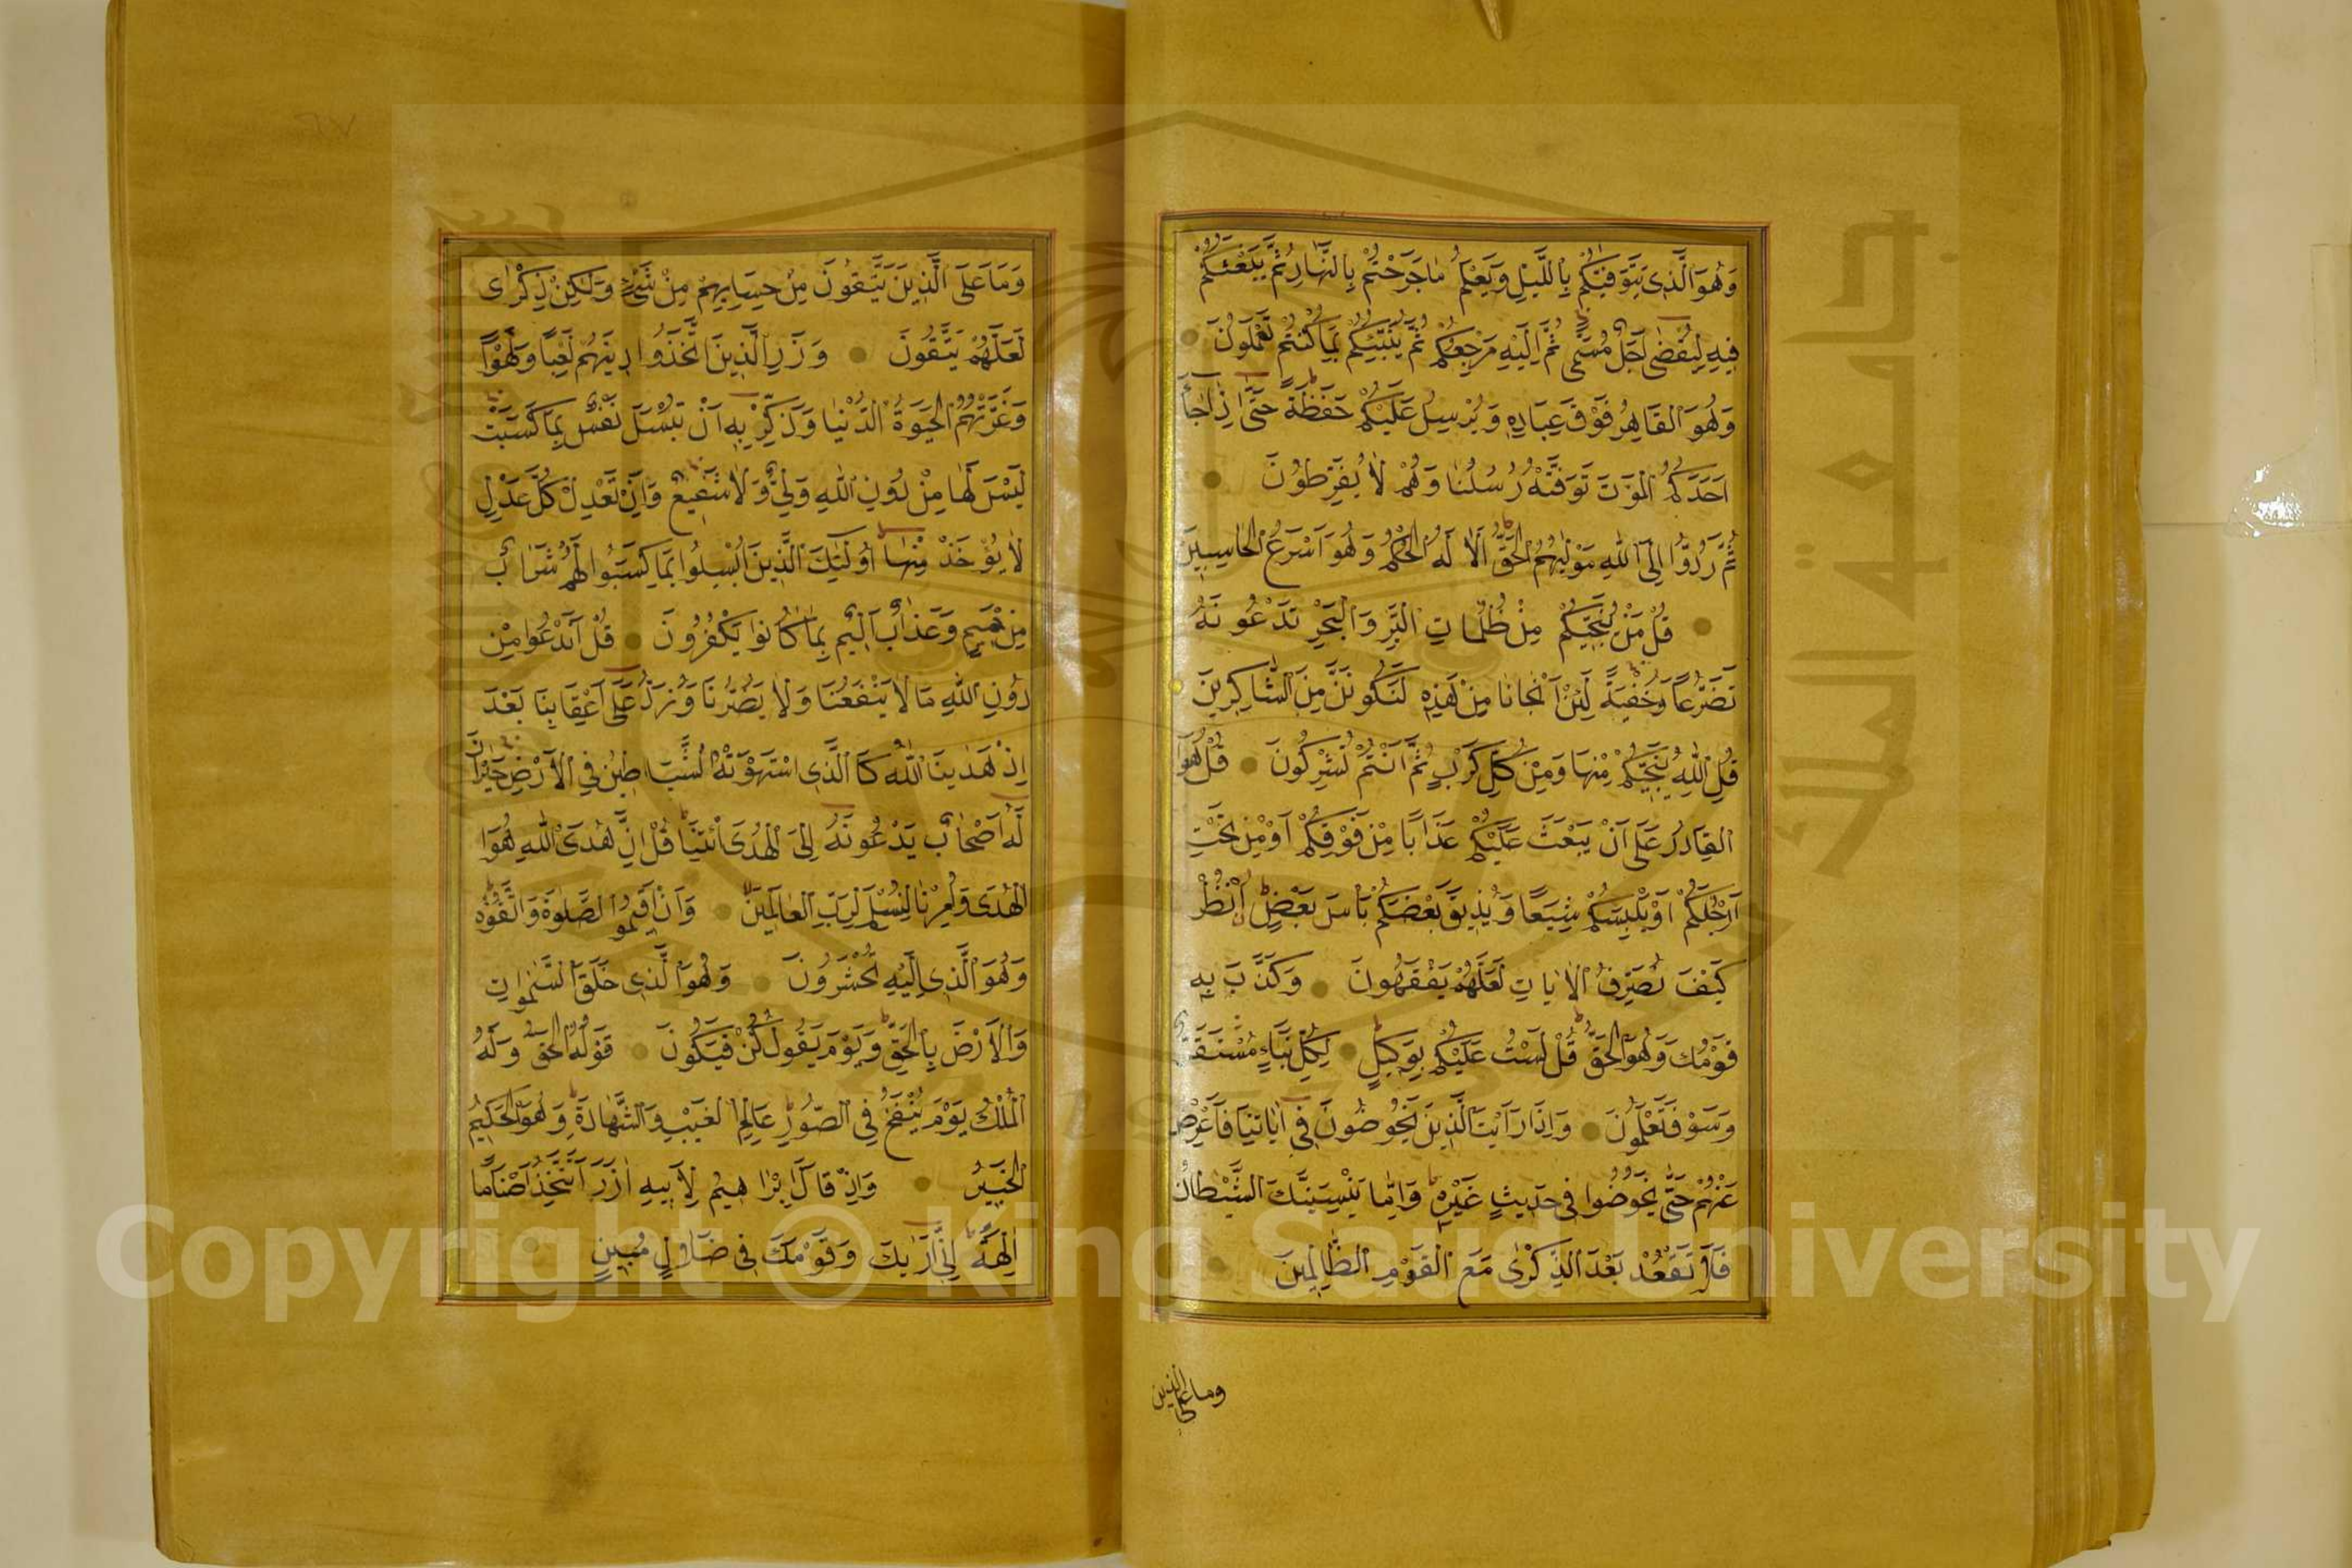 وَهُوَ الَّذِى يَتَوَفّٰيكُمْ بِاللَّيْلِ وَيَعْلَمُ مَا جَرَحْتُمْ بِالنَّهَارِ ثُمَّ يَبْعَثُكُمْ
فِيهِ لِيُقْضٰى اَجَلٌ مُسَمًّى ثُمَّ اِلَيْهِ مَرْجِعُكُمْ ثُمَّ يُنَبِّئُكُمْ بِمَا كُنْتُمْ تَعْمَلُونَ
وَهُوَ الْقَاهِرُ فَوْقَ عِبَادِهِ وَيُرْسِلُ عَلَيْكُمْ حَفَظَةً حَتَّى اِذَا جَاءَ
اَحَدَكُمُ الْمَوْتُ تَوَفَّتْهُ رُسُلُنَا وَهُمْ لَا يُفَرِّطُونَ
ثُمَّ رُدُّوا اِلَى اللّٰهِ مَوْلٰيهُمُ الْحَقِّ اَلَا لَهُ الْحُكْمُ وَهُوَ اَسْرَعُ الْحَاسِبِينَ
قُلْ مَنْ يُنَجِّيكُمْ مِنْ ظُلُمَاتِ الْبَرِّ وَالْبَحْرِ تَدْعُونَهُ
تَضَرُّعًا وَخُفْيَةً لَئِنْ اَنْجَانَا مِنْ هَذِهِ لَنَكُونَنَّ مِنَ الشَّاكِرِينَ
قُلِ اللّٰهُ يُنَجِّيكُمْ مِنْهَا وَمِنْ كُلِّ كَرْبٍ ثُمَّ اَنْتُمْ تُشْرِكُونَ قُلْ هُوَ
الْقَادِرُ عَلَى اَنْ يَبْعَثَ عَلَيْكُمْ عَذَابًا مِنْ فَوْقِكُمْ اَوْ مِنْ تَحْتِ
اَرْجُلِكُمْ اَوْ يَلْبِسَكُمْ شِيَعًا وَيُذِيقَ بَعْضَكُمْ بَأْسَ بَعْضٍ اُنْظُرْ
كَيْفَ نُصَرِّفُ الْاٰيَاتِ لَعَلَّهُمْ يَفْقَهُونَ وَكَذَّبَ بِهِ
قَوْمُكَ وَهُوَ الْحَقُّ قُلْ لَسْتُ عَلَيْكُمْ بِوَكِيلٍ لِكُلِّ نَبَاءٍ مُسْتَقَرٌّ
وَسَوْفَ تَعْلَمُونَ وَاِذَا رَاَيْتَ الَّذِينَ يَخُوضُونَ فِى اٰيَاتِنَا فَاَعْرِضْ
عَنْهُمْ حَتَّى يَخُوضُوا فِى حَدِيثٍ غَيْرِهِ وَاِمَّا يُنْسِيَنَّكَ الشَّيْطَانُ
فَلَا تَقْعُدْ بَعْدَ الذِّكْرٰى مَعَ الْقَوْمِ الظَّالِمِينَ
وما على الذين
وَمَا عَلَى الَّذِينَ يَتَّقُونَ مِنْ حِسَابِهِمْ مِنْ شَىْءٍ وَلَكِنْ ذِكْرٰى
لَعَلَّهُمْ يَتَّقُونَ وَذَرِ الَّذِينَ اتَّخَذُوا دِينَهُمْ لَعِبًا وَلَهْوًا
وَغَرَّتْهُمُ الْحَيٰوةُ الدُّنْيَا وَذَكِّرْ بِهِ اَنْ تُبْسَلَ نَفْسٌ بِمَا كَسَبَتْ
لَيْسَ لَهَا مِنْ دُونِ اللّٰهِ وَلِىٌّ وَلَا شَفِيعٌ وَاِنْ تَعْدِلْ كُلَّ عَدْلٍ
لَا يُؤْخَذْ مِنْهَا اُولٰئِكَ الَّذِينَ اُبْسِلُوا بِمَا كَسَبُوا لَهُمْ شَرَابٌ
مِنْ حَمِيمٍ وَعَذَابٌ اَلِيمٌ بِمَا كَانُوا يَكْفُرُونَ قُلْ اَنَدْعُوا مِنْ
دُونِ اللّٰهِ مَا لَا يَنْفَعُنَا وَلَا يَضُرُّنَا وَنُرَدُّ عَلَى اَعْقَابِنَا بَعْدَ
اِذْ هَدٰينَا اللّٰهُ كَالَّذِى اسْتَهْوَتْهُ الشَّيَاطِينُ فِى الْاَرْضِ حَيْرَانَ
لَهُ اَصْحَابٌ يَدْعُونَهُ اِلَى الْهُدَى ائْتِنَا قُلْ اِنَّ هُدَى اللّٰهِ هُوَ
الْهُدٰى وَاُمِرْنَا لِنُسْلِمَ لِرَبِّ الْعَالَمِينَ وَاَنْ اَقِيمُوا الصَّلٰوةَ وَاتَّقُوهُ
وَهُوَ الَّذِى اِلَيْهِ تُحْشَرُونَ وَهُوَ الَّذِى خَلَقَ السَّمٰوَاتِ
وَالْاَرْضَ بِالْحَقِّ وَيَوْمَ يَقُولُ كُنْ فَيَكُونُ قَوْلُهُ الْحَقُّ وَلَهُ
الْمُلْكُ يَوْمَ يُنْفَخُ فِى الصُّورِ عَالِمُ الْغَيْبِ وَالشَّهَادَةِ وَهُوَ الْحَكِيمُ
الْخَبِيرُ وَاِذْ قَالَ اِبْرَاهِيمُ لِاَبِيهِ اٰزَرَ اَتَتَّخِذُ اَصْنَامًا
اٰلِهَةً اِنِّى اَرٰيكَ وَقَوْمَكَ فِى ضَلَالٍ مُبِينٍ
Copyright © King Saud University